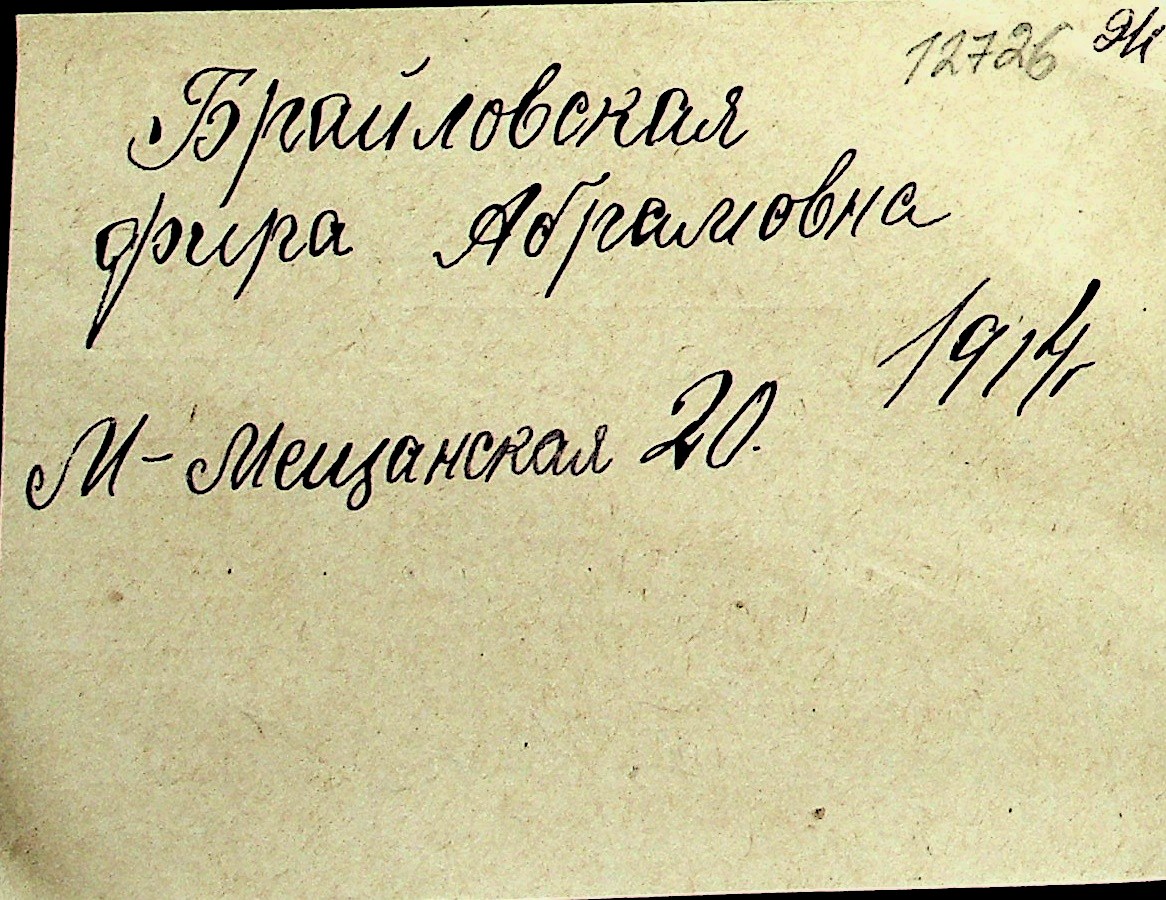 12726
Брайловская
фира Абрамовна
1914г
М-Мещанская 20.